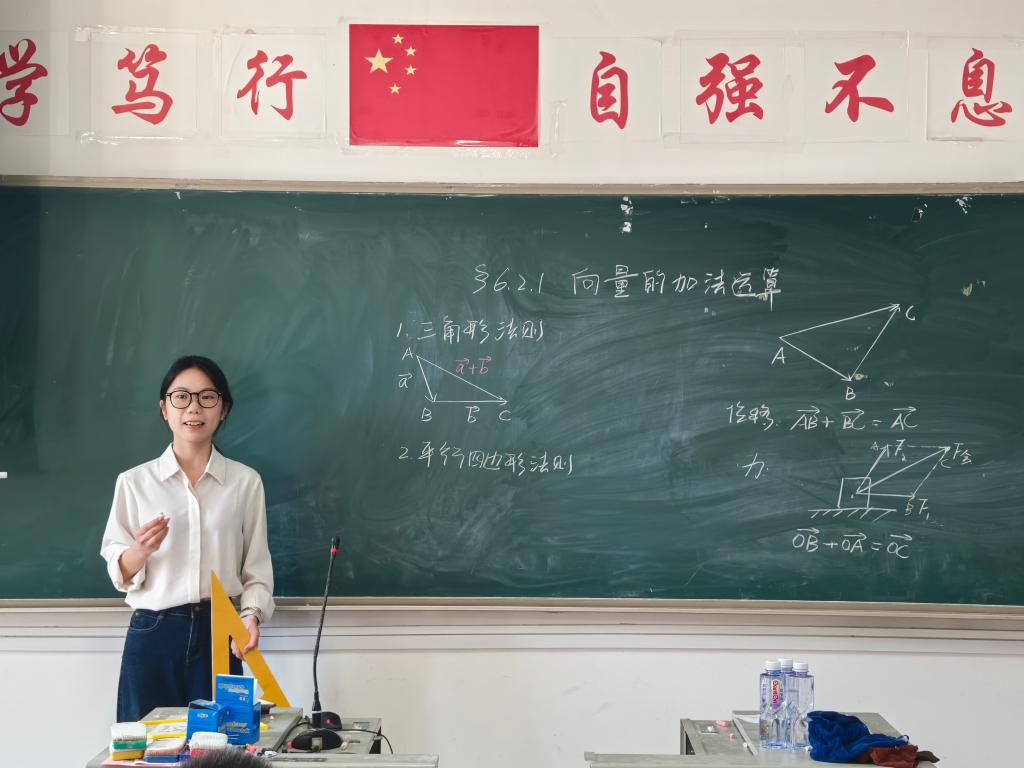 学笃行 自强不息
§6.2.1 向量的加法运算
1. 三角形法则
A
a⃗ a⃗+b⃗
B b⃗ C
2. 平行四边形法则
C
A
B
位移. AB⃗ + BC⃗ = AC⃗
力.
A F₂ F合
C
B F₁
OB⃗ + OA⃗ = OC⃗